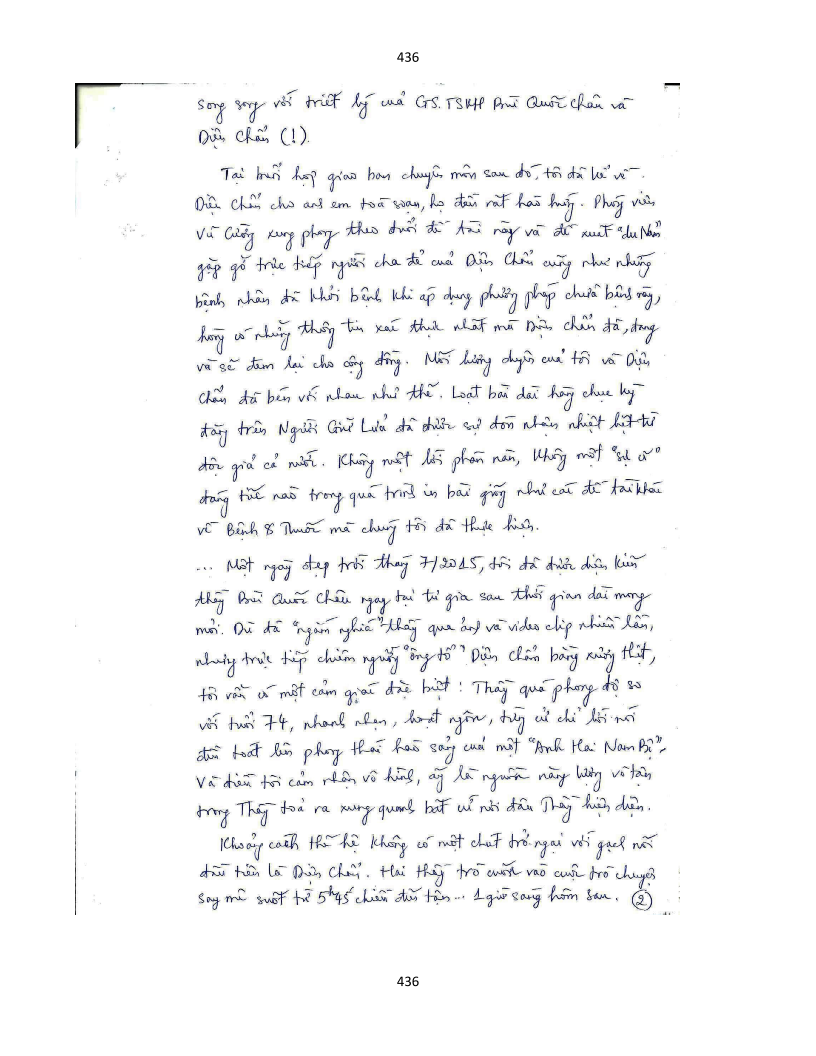 436
song song với triết lý của GS.TSKH Bùi Quốc Châu và
Diện Chẩn (!).
Tại buổi họp giao ban chuyên môn sau đó, tôi đã kể về
Diện Chẩn cho anh em toà soạn, họ đều rất hào hứng. Phóng viên
Vũ Cường xung phong theo đuổi đề tài này và đề xuất "du Nam"
gặp gỡ trực tiếp người cha đẻ của Diện Chẩn cũng như những
bệnh nhân đã khỏi bệnh khi áp dụng phương pháp chữa bệnh này,
hòng có những thông tin xác thực nhất mà Diện Chẩn đã, đang
và sẽ đem lại cho cộng đồng. Mối lương duyên của tôi và Diện
Chẩn đã bén với nhau như thế. Loạt bài dài hàng chục kỳ
đăng trên Người Giữ Lửa đã được sự đón nhận nhiệt liệt từ
độc giả cả nước. Không một lời phàn nàn, không một "sự cố"
đáng tiếc nào trong quá trình in bài giống như các đề tài khác
về Bệnh & Thuốc mà chúng tôi đã thực hiện.
... Một ngày đẹp trời tháng 7/2015, tôi đã được diện kiến
thầy Bùi Quốc Châu ngay tại tư gia sau thời gian dài mong
mỏi. Dù đã "ngắm nghía" thầy qua ảnh và video clip nhiều lần,
nhưng trực tiếp chiêm ngưỡng "ông tổ" Diện Chẩn bằng xương thịt,
tôi vẫn có một cảm giác đặc biệt: Thầy quá phong độ so
với tuổi 74, nhanh nhẹn, hoạt ngôn, từng cử chỉ lời nói
đều toát lên phong thái hào sảng của một "Anh Hai Nam Bộ".
Và điều tôi cảm nhận vô hình, ấy là nguồn năng lượng vô tận
trong Thầy toả ra xung quanh bất cứ nơi đâu Thầy hiện diện.
Khoảng cách thế hệ không có một chút trở ngại với gạch nối
đầu tiên là Diện Chẩn. Hai thầy trò cuốn vào cuộc trò chuyện
say mê suốt từ 5h45' chiều đến tận... 1 giờ sáng hôm sau. (2)
436